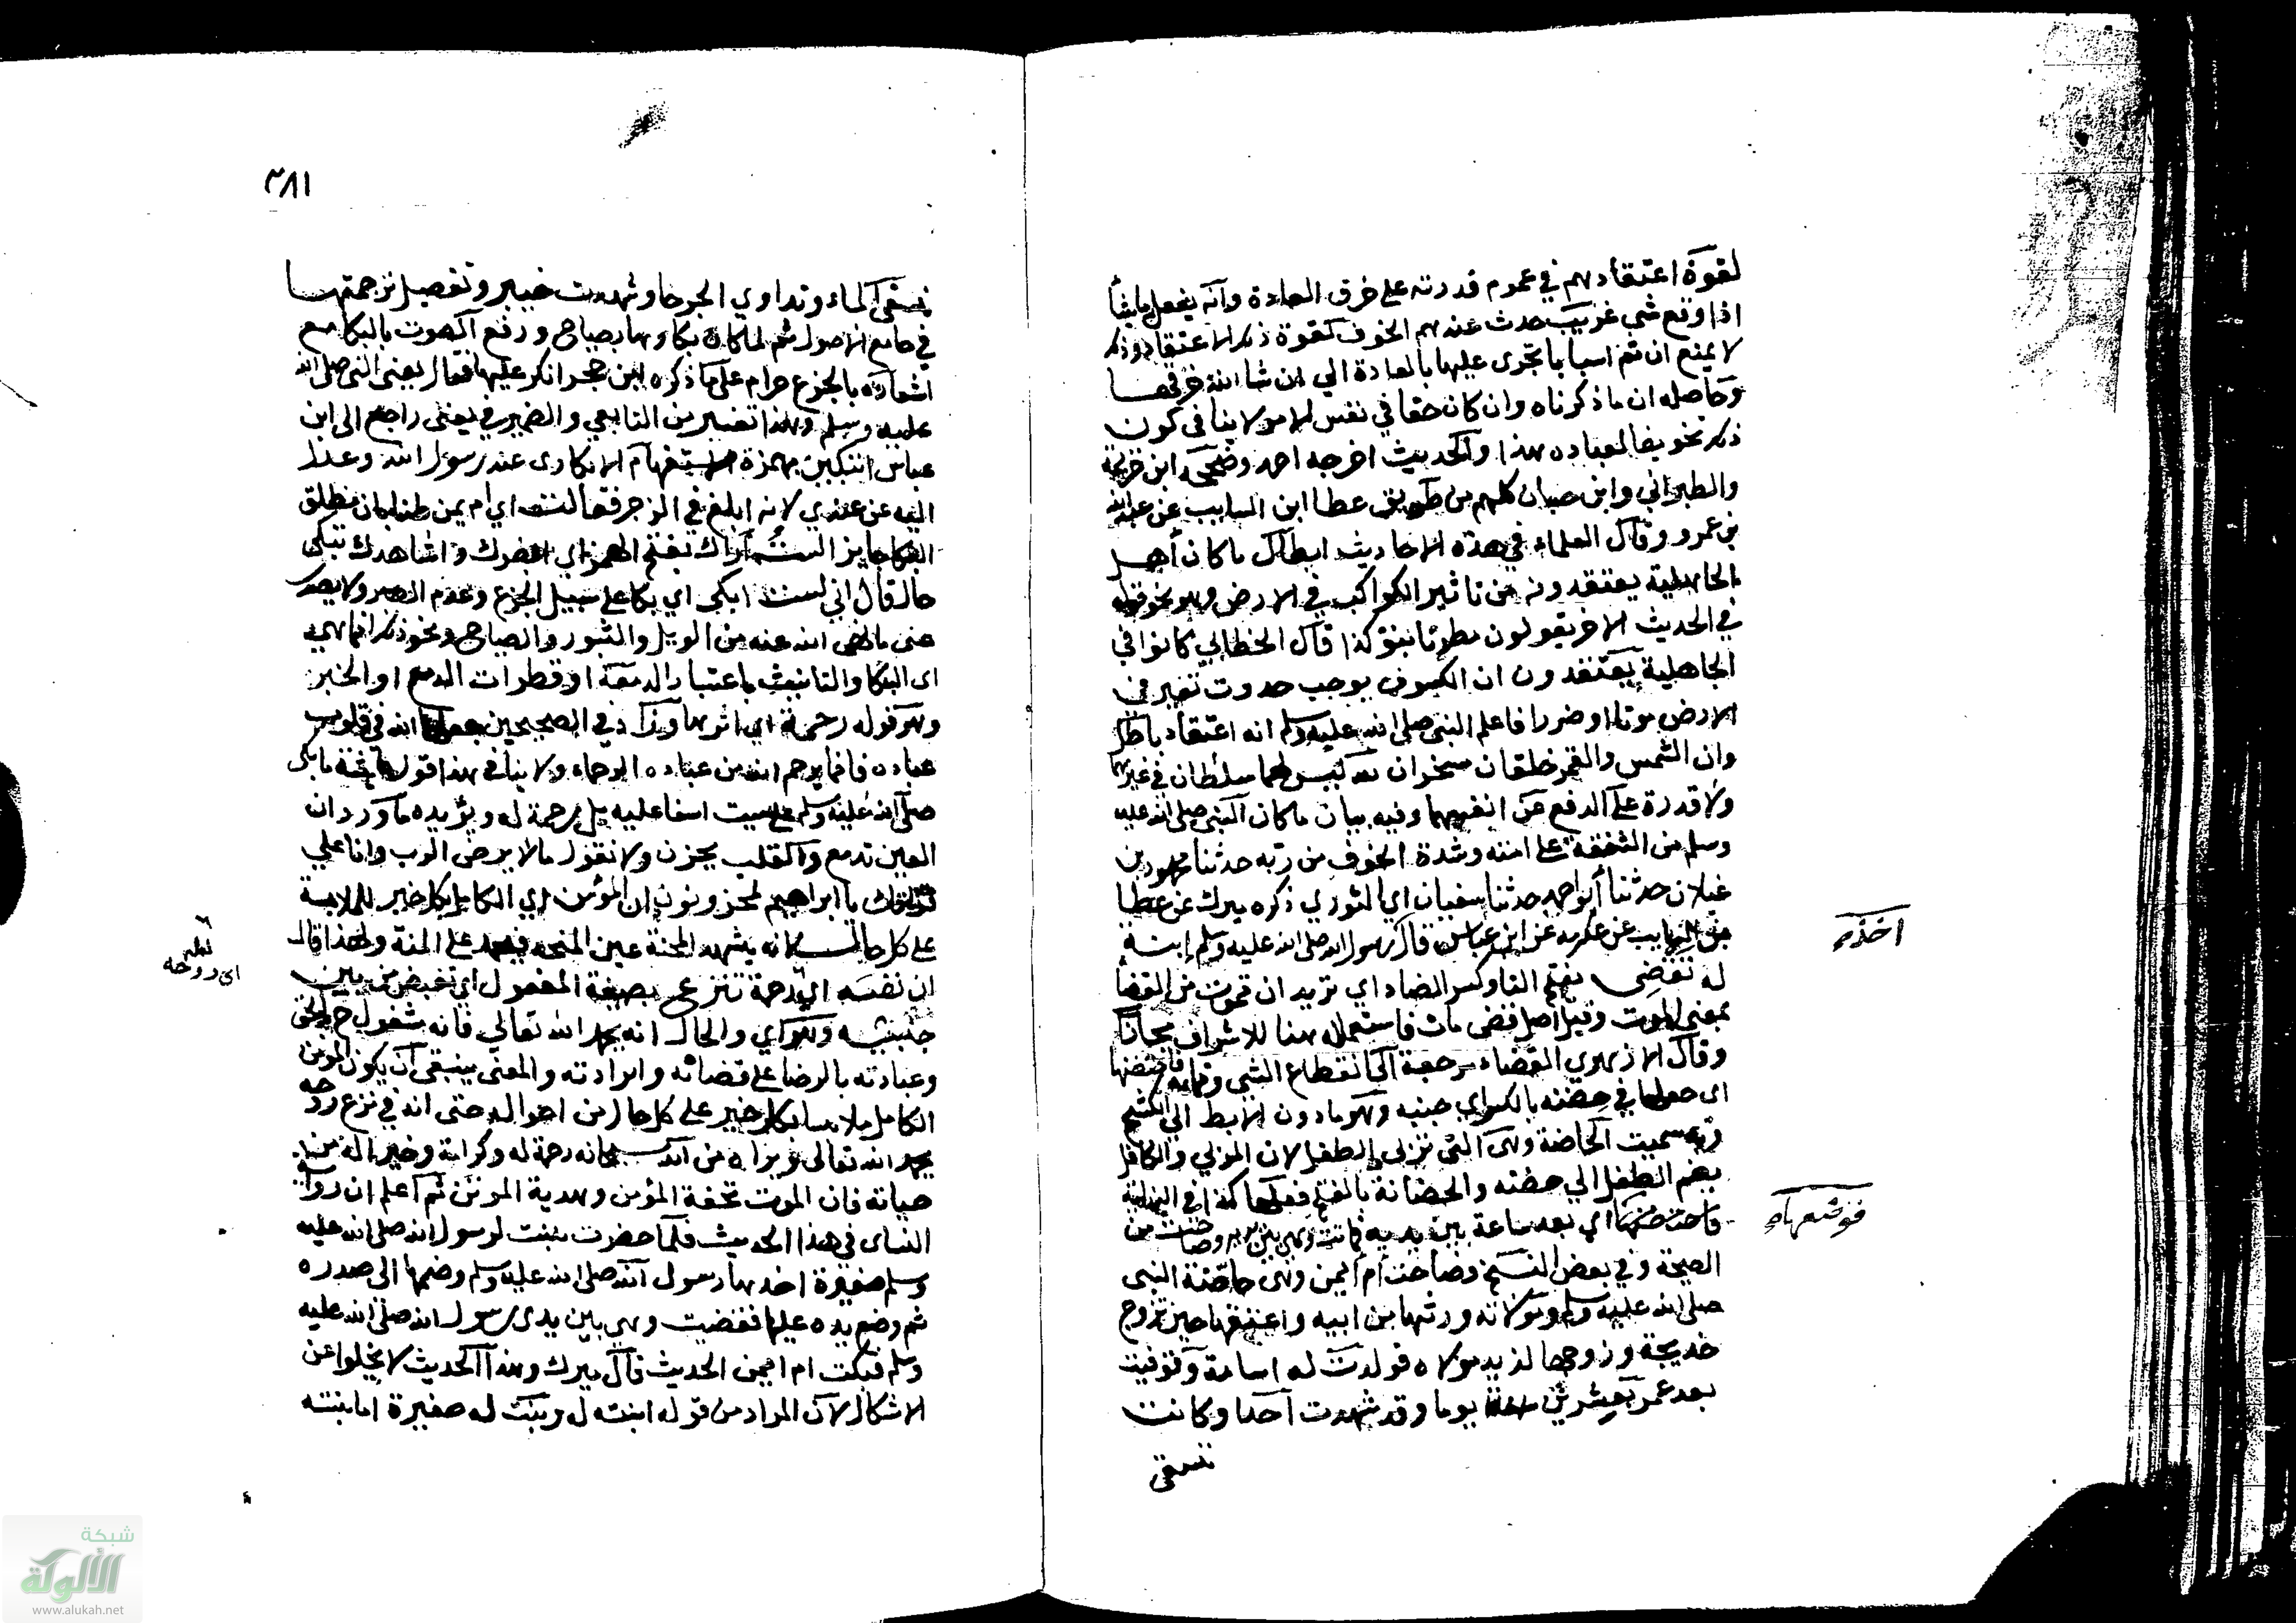 لقوة اعتقادهم في عموم قدرته على خرق العادة وأنه يفعل ما يشأ
اذا وقع شي غريب حدث عندهم الخوف لقوة ذلك الاعتقاد وذلك
لا يمنع ان ثم اسبابا تجرى عليها بالعادة الي ان شا الله خرقها
وحاصله ان ما ذكرناه وان كان حقا في نفس الامر لا ينافى كون
ذلك تخويفا لعباده هذا والحديث اخرجه احمد وصححه ابن خزيمة
والطبراني وابن حبان كلهم من طريق عطا ابن السايب عن عبد الله
بن عمرو وقال العلماء في هذه الاحاديث ابطال ما كان أهل
الجاهلية يعتقدونه من تاثير الكواكب في الارض وهو نحو قوله
في الحديث الاخر يقولون مطرنا بنو كذا قال الخطابي كانوا في
الجاهلية يعتقدون ان الكسوف يوجب حدوت تغير في
الارض موتا او ضررا فاعلم النبى صلى الله عليه وسلم انه اعتقاد باطل
وان الشمس والقمر خلقان مسخران لله ليس لهما سلطان في غيرهما
ولا قدرة على الدفع عن انفسهما وفيه بيان ما كان النبى صلى الله عليه
وسلم من الشفقة على امته وشدة الخوف من ربه حدثنا محمود بن
غيلان حدثنا أبو احمد حدثنا سفيان اي الثوري ذكره ميرك عن عطا
بن السايب عن عكرمه عن ابن عباس قال رسول الله صلى الله عليه وسلم ابنة
اخذ
له تقضى بفتح التا وكسر الضاد اي تريد ان تموت من القضأ
بمعنى الموت وقيل اصل قضى مات فاستعماله هنا للاشراف مجازا
وقال الازهري القضاء مرجعه الى انقطاع الشي وتمامه فاحتضنها
اى جعلها في حضنه بالكسر اي جنبه وهو ما دون الابط الى الكشح
وبه سميت الحاضنة وهى التى تربي الطفل لان المربي والكافل
يضم الطفل الي حضنه والحضانة بالفتح فعلها كذا في النهاية
فوضعها
اي بعد ساعة بين يديه فماتت وهى بين يديه وصاحت من
الصيحة وفي بعض النسخ فصاحت أم أيمن وهى حاضنة النبى
صلى الله عليه وسلم ومولاته ورثها من ابيه واعتقها حين تزوج
خديجة وزوجها لزيد مولاه فولدت له اسامة وتوفيت
بعد عمر بعشرين يوما وقد شهدت احدا وكانت
تسقى
٣٨١
تسقى الماء وتداوي الجرحا وشهدت خيبر وتفصيل ترجمتها
في جامع الاصول ثم لما كان بكاوها بصياح ورفع الصوت بالبكا مع
اشعاره بالجزع حرام على ما ذكره ابن حجر انكر عليها فقال يعنى النبى صلى الله
عليه وسلم وهذا تفسير من التابعي والضمير في يعنى راجع الى ابن
عباس اتبكين بهمزة الاستفهام الانكارى عند رسول الله وعدل
اليه عن عندي لانه ابلغ في الزجر فقالت اي ام يمن ظنا بان مطلق
البكا جايز الست أراك بفتح الهمز اي ابصرك واشاهدك تبكى
حال قال اني لست ابكى اي بكا على سبيل الجزع وعدم الصبر ولا يصدر
عنى ما نهى الله عنه من الويل والثبور والصياح ونحو ذلك انما هي
اى البكا والتانيث باعتبار الدمعة او قطرات الدمع او الخبر
وهو قوله رحمة اي اثرها وزاد في الصحيحين جعلها الله في قلوب
عباده فانما يرحم الله من عباده الرحماء ولا ينافى هذا قول عايشة ما بكى
صلى الله عليه وسلم على ميت اسفا عليه بل رحمة له ويؤيده ما ورد ان
العين تدمع والقلب يحزن ولا نقول ما لا يرضى الرب وانا علي
فراقك يا ابراهيم لمحزونون ان المؤمن اي الكامل بكل خير للملابسة
على كل حال لانه يشهد المحنة عين المنحه فيحمد على المنة ولهذا قال
ان نفسه اي رحمة تنزع بصيغة المفعول اي تقبض من بين
اى روحه
جنبيه وهو اي والحال انه يحمد الله تعالى فانه مشغول ح بالحق
وعبادته بالرضا على قضائه وارادته والمعنى ينبغى أن يكون المومن
الكامل ملابسا لكل خير على كل حال من احواله حتى انه في نزع روحه
يحمد الله تعالى ويراه من الله سبحانه رحمة له وكرامة وخير له من
حياته فان الموت تحفة المؤمن وهدية المومن ثم اعلم ان رواية
النساى في هذا الحديث فلما حضرت بنت لرسول الله صلى الله عليه
وسلم صغيرة اخذها رسول الله صلى الله عليه وسلم وضمها الى صدره
ثم وضع يده عليها فقضيت وهى بين يدى رسول الله صلى الله عليه
وسلم فبكت ام ايمن الحديث قال ميرك وهذا الحديث لا يخلوا عن
الاشكال لان المراد من قوله ابنته له وبنت له صغيرة اما بنته
شبكة
الألوكة
www.alukah.net